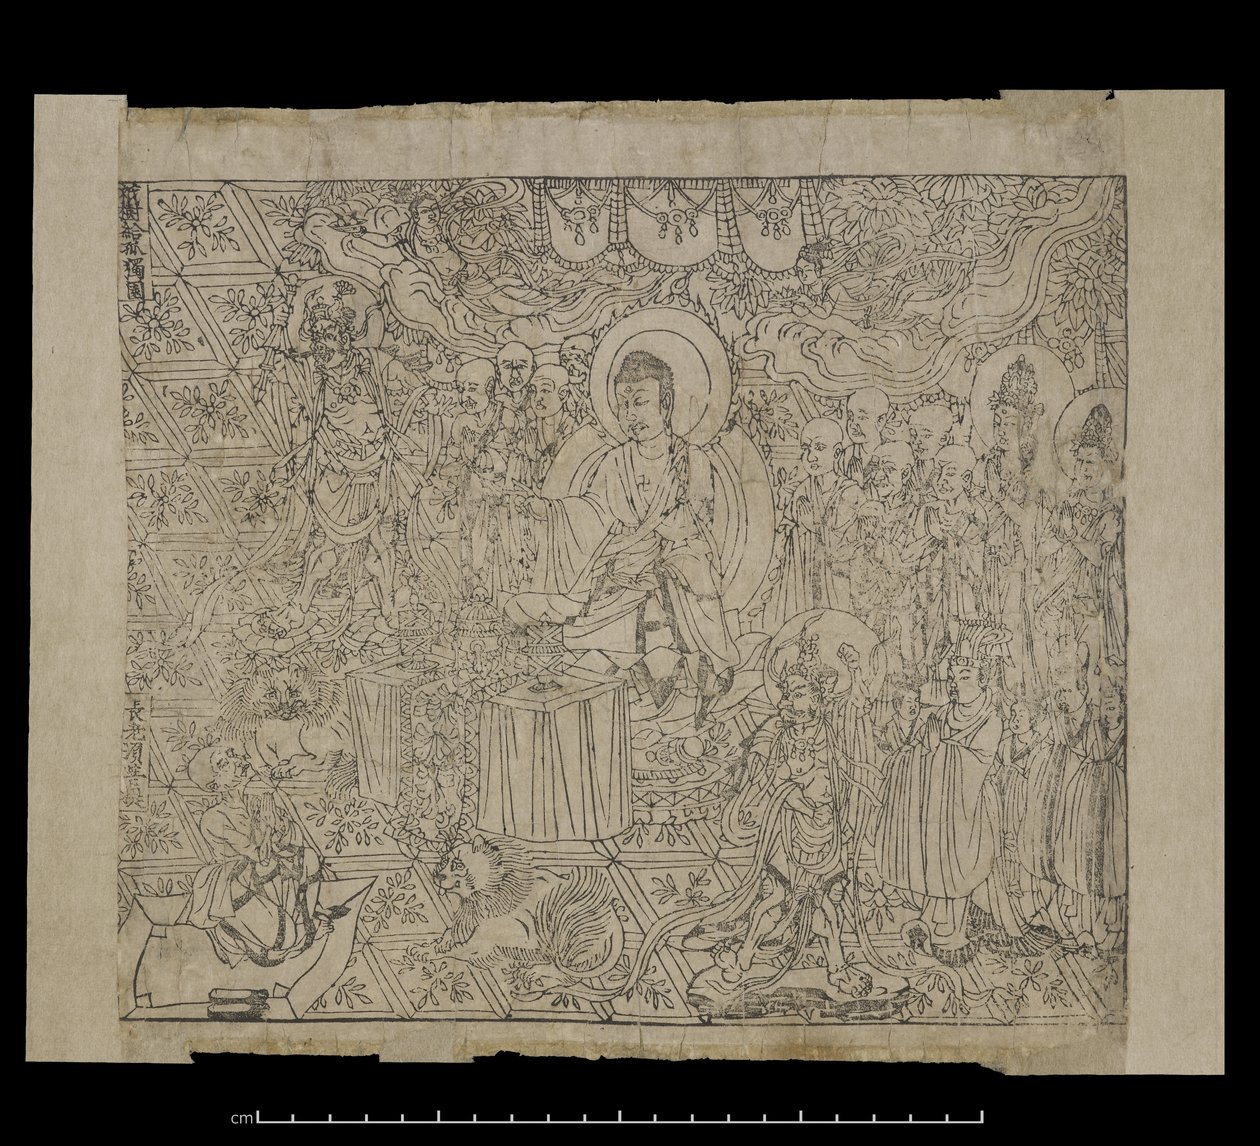 祇樹給孤獨園
長老須菩提
cm